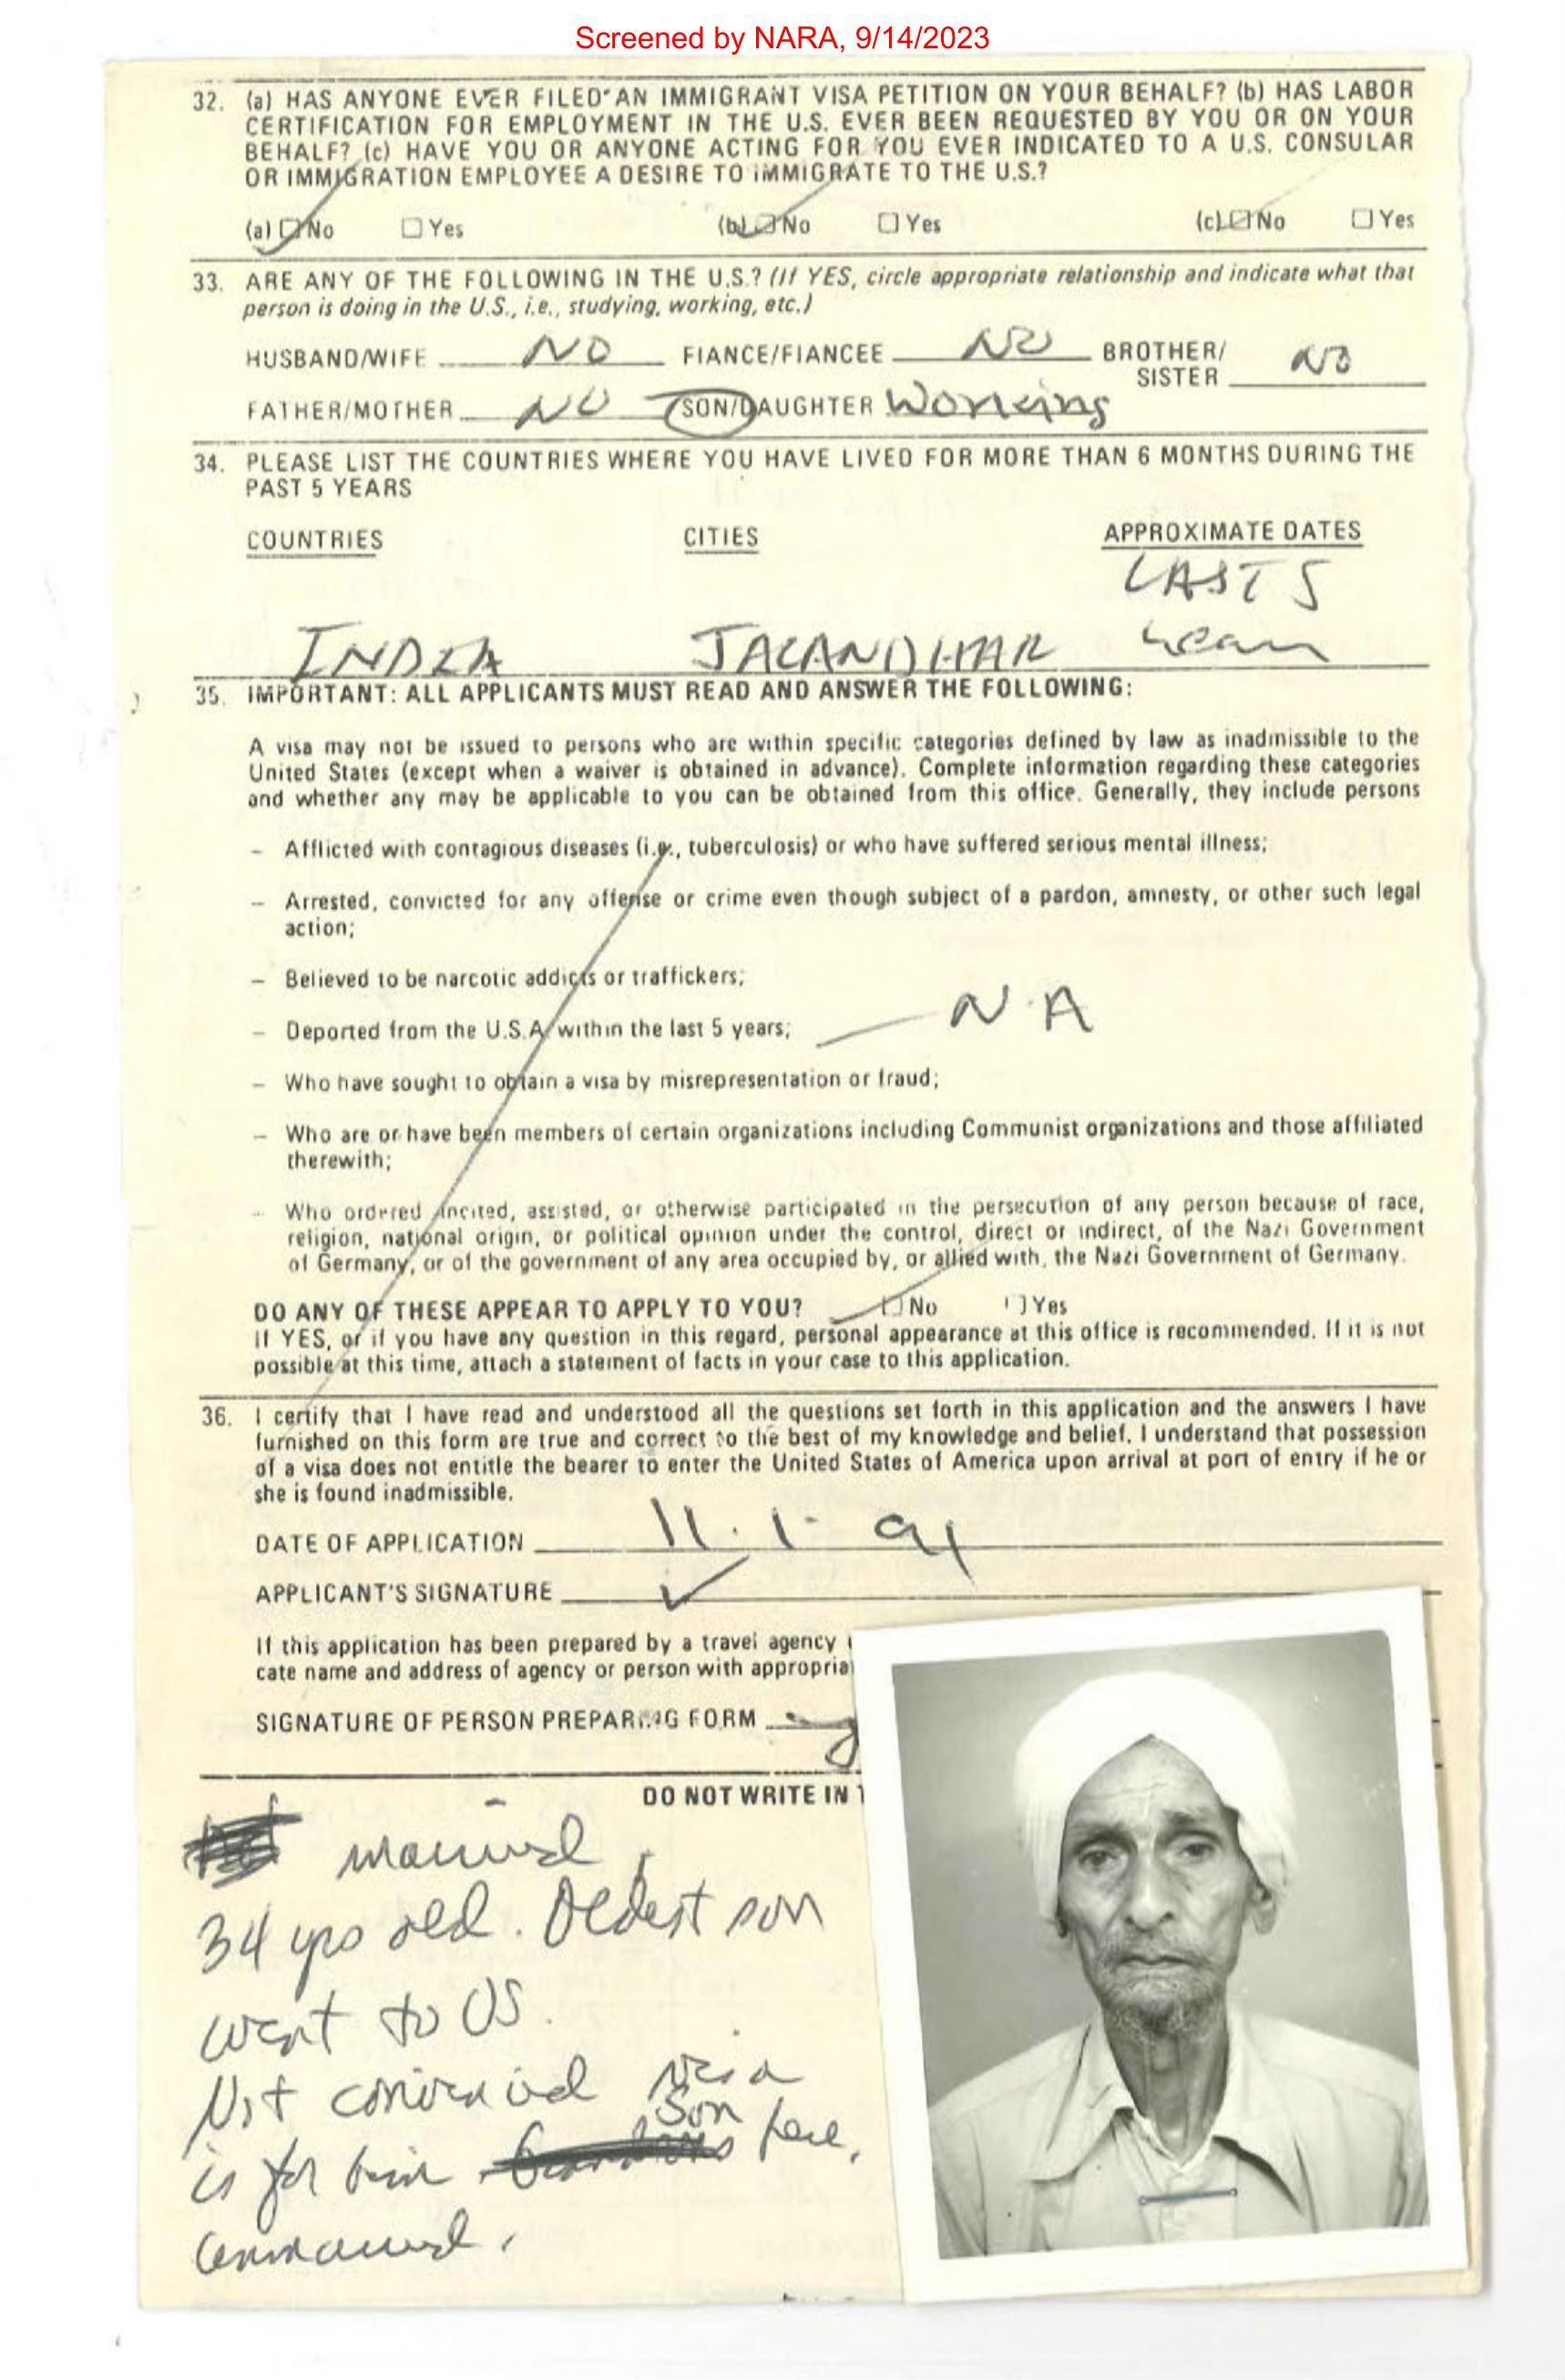 Screened by NARA, 9/14/2023
32. (a) HAS ANYONE EVER FILED AN IMMIGRANT VISA PETITION ON YOUR BEHALF? (b) HAS LABOR
CERTIFICATION FOR EMPLOYMENT IN THE U.S. EVER BEEN REQUESTED BY YOU OR ON YOUR
BEHALF? (c) HAVE YOU OR ANYONE ACTING FOR YOU EVER INDICATED TO A U.S. CONSULAR
OR IMMIGRATION EMPLOYEE A DESIRE TO IMMIGRATE TO THE U.S.?
(a) ☐ No ☐ Yes (b) ☐ No ☐ Yes (c) ☐ No ☐ Yes
33. ARE ANY OF THE FOLLOWING IN THE U.S.? (If YES, circle appropriate relationship and indicate what that
person is doing in the U.S., i.e., studying, working, etc.)
HUSBAND/WIFE NO FIANCE/FIANCEE NO BROTHER/
SISTER NO
FATHER/MOTHER NO SON/DAUGHTER Working
34. PLEASE LIST THE COUNTRIES WHERE YOU HAVE LIVED FOR MORE THAN 6 MONTHS DURING THE
PAST 5 YEARS
COUNTRIES CITIES APPROXIMATE DATES
LAST 5
INDIA JALANDHAR years
35. IMPORTANT: ALL APPLICANTS MUST READ AND ANSWER THE FOLLOWING:
A visa may not be issued to persons who are within specific categories defined by law as inadmissible to the
United States (except when a waiver is obtained in advance). Complete information regarding these categories
and whether any may be applicable to you can be obtained from this office. Generally, they include persons
– Afflicted with contagious diseases (i.e., tuberculosis) or who have suffered serious mental illness;
– Arrested, convicted for any offense or crime even though subject of a pardon, amnesty, or other such legal
action;
– Believed to be narcotic addicts or traffickers;
– Deported from the U.S.A. within the last 5 years; N.A
– Who have sought to obtain a visa by misrepresentation or fraud;
– Who are or have been members of certain organizations including Communist organizations and those affiliated
therewith;
– Who ordered, incited, assisted, or otherwise participated in the persecution of any person because of race,
religion, national origin, or political opinion under the control, direct or indirect, of the Nazi Government
of Germany, or of the government of any area occupied by, or allied with, the Nazi Government of Germany.
DO ANY OF THESE APPEAR TO APPLY TO YOU? ☐ No ☐ Yes
If YES, or if you have any question in this regard, personal appearance at this office is recommended. If it is not
possible at this time, attach a statement of facts in your case to this application.
36. I certify that I have read and understood all the questions set forth in this application and the answers I have
furnished on this form are true and correct to the best of my knowledge and belief. I understand that possession
of a visa does not entitle the bearer to enter the United States of America upon arrival at port of entry if he or
she is found inadmissible.
DATE OF APPLICATION 11.1.91
APPLICANT'S SIGNATURE
If this application has been prepared by a travel agency
cate name and address of agency or person with appropria
SIGNATURE OF PERSON PREPARING FORM
DO NOT WRITE IN
married
34 yrs old. Oldest son
went to US.
Not convinced visa
Son
is for him here.
unmarried.